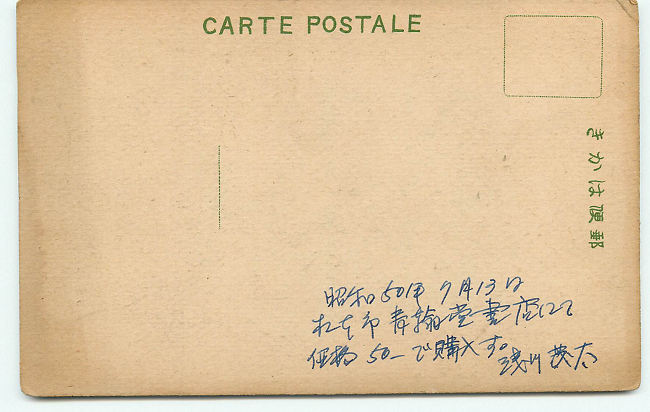 CARTE POSTALE
きかは便郵
昭和50年7月13日
松本市青翰堂書店にて
価格50_で購入す。
浅川英太